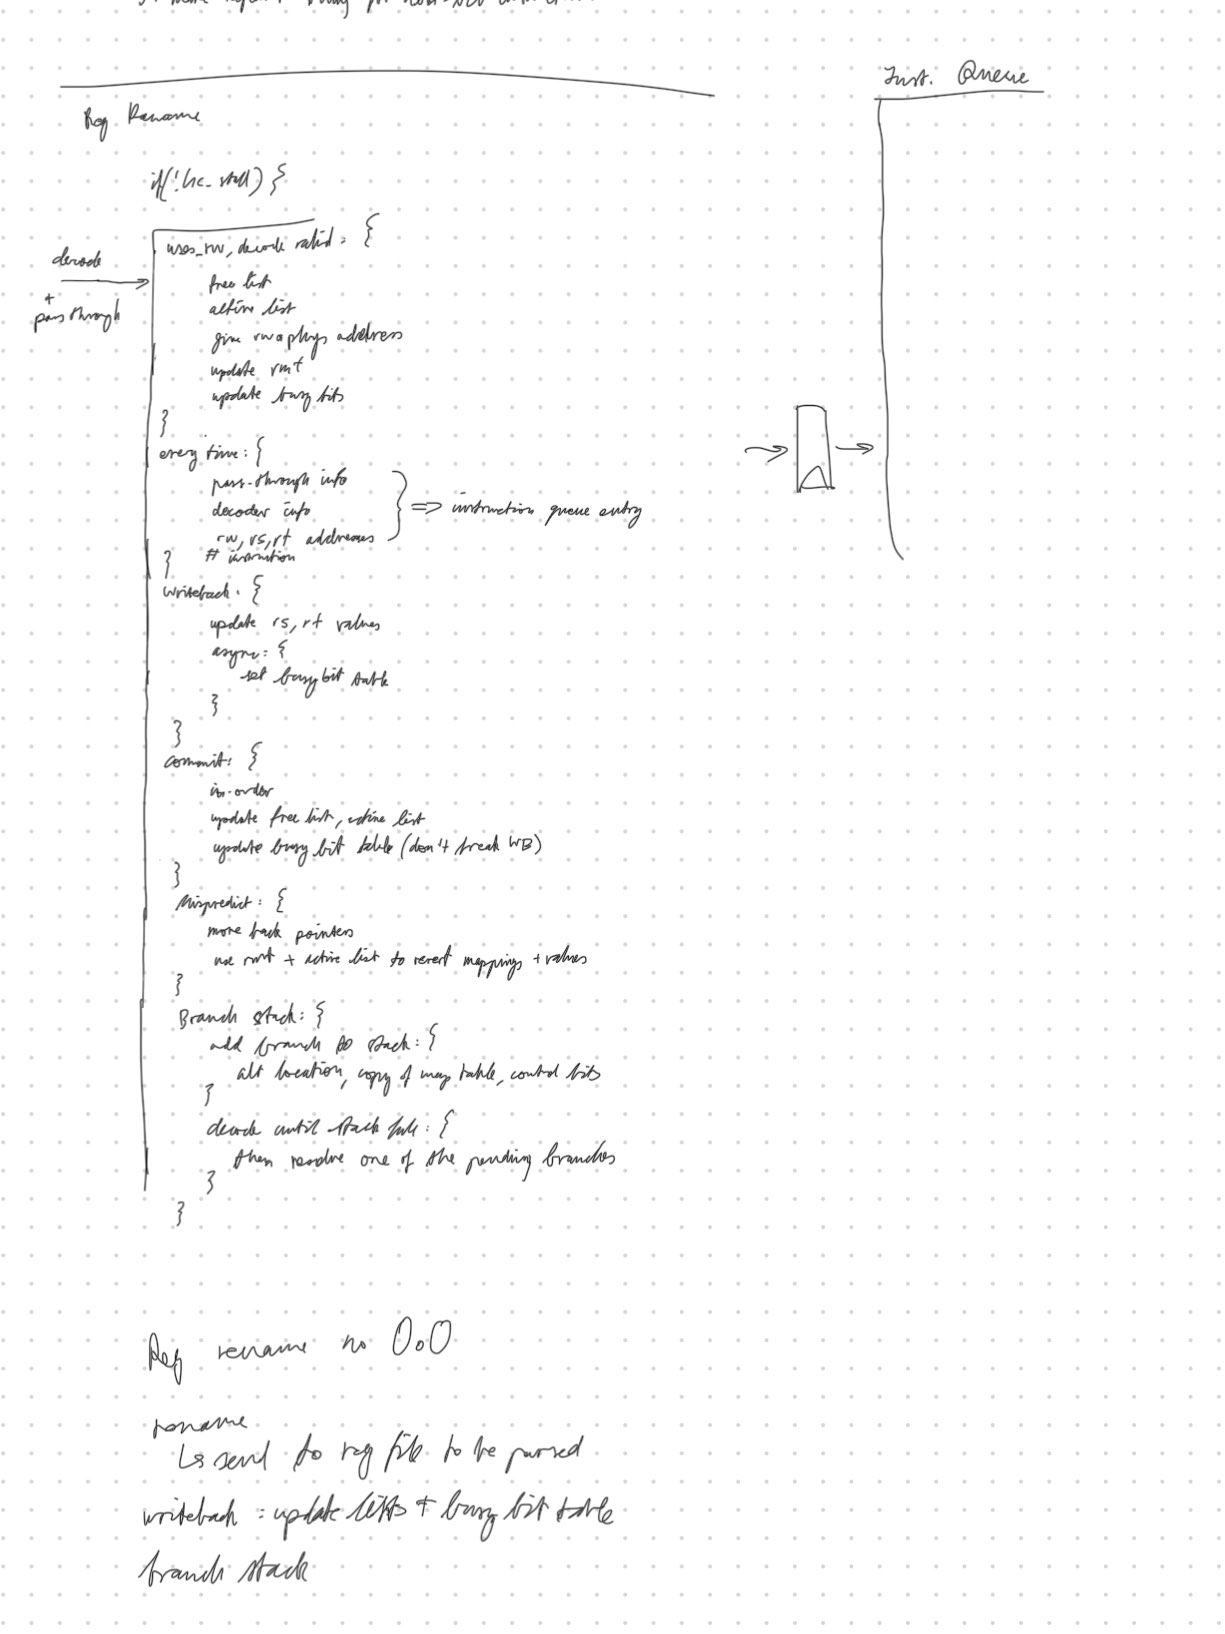 Inst. Queue
Reg Rename
if(! hc_stall) {
decode
+
pass through
uses_rw, decode valid : {
free list
active list
give rw a phys address
update rmt
update busy bits
}
every time : {
pass-through info
decoder info
rw, rs, rt addresses
# instruction
} => instruction queue entry
}
writeback : {
update rs, rt values
async: {
set busy bit table
}
}
commit: {
in-order
update free list, active list
update busy bit table (don't break WB)
}
Mispredict : {
move back pointers
use rmt + active list to revert mappings + values
}
Branch stack: {
add branch to stack : {
alt location, copy of map table, control bits
}
decode until stack full : {
then resolve one of the pending branches
}
}
Reg rename no OoO
rename
↳ send to reg file to be parsed
writeback : update lists + busy bit table
branch stack